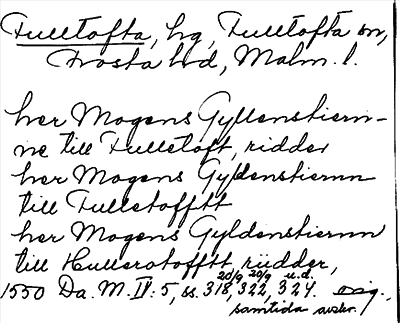 Fulltofta, hg, Fulltofta sn,
Frosta hd, Malm. l.
her Mogens Gyllenstiern-
ne till Fulletoft, ridder
her Mogens Gyldenstiernn
till Fulletofftt
her Mogens Gyldenstiernn
till Hullerotofftt riidder,
20/9 20/9 u.d.
1550 Da. M. IV: 5, ss. 318, 322, 324. orig.,
samtida avskr.